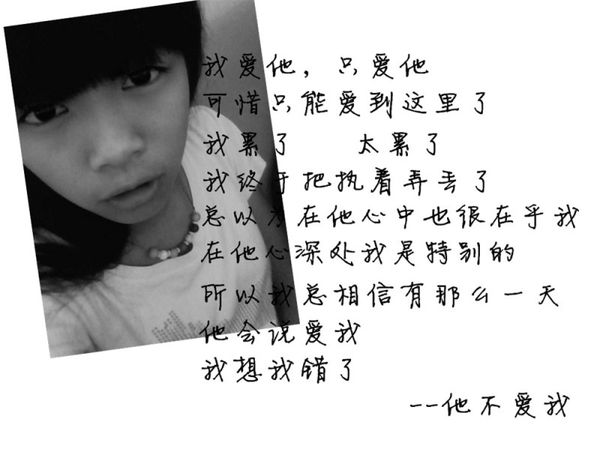 我爱他，只爱他
可惜只能爱到这里了
我累了 太累了
我终于把执着弄丢了
总以为在他心中也很在乎我
在他心深处我是特别的
所以我总相信有那么一天
他会说爱我
我想我错了
--他不爱我